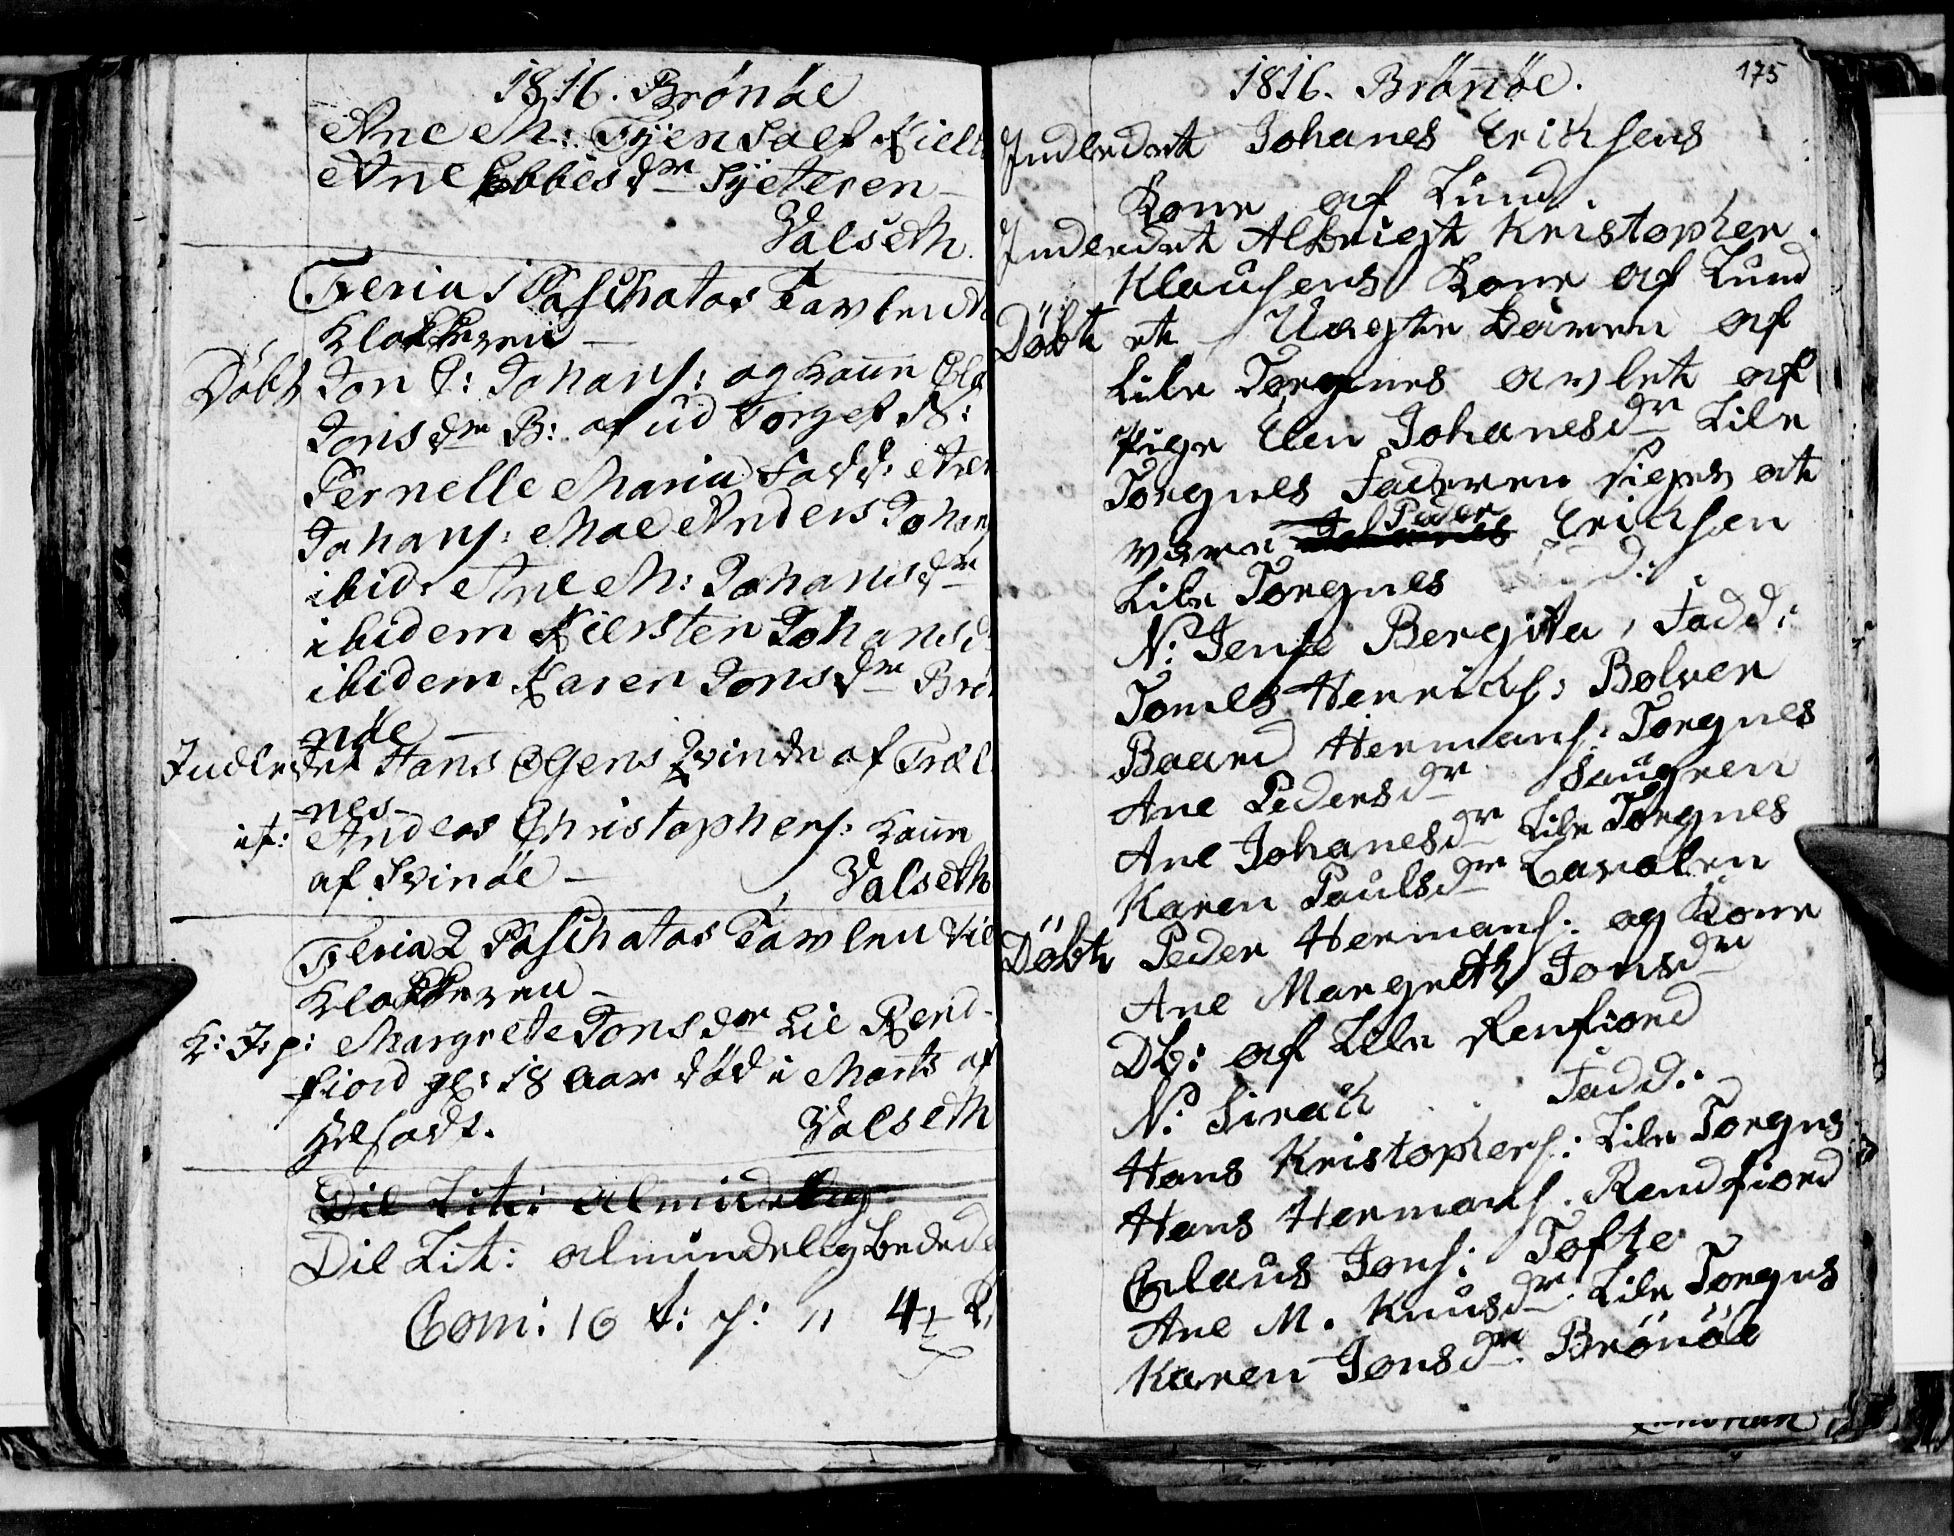 1816. Brönöe
Ane M: Tjensaet Kield
Ane Ebbesdr Sÿeteren
Valseth.
Feria 1 Paschatos Tavlen
Klokkeren
Döbt Jon P: Johans: og kone
Jonsdr B: af ud Torget N:
Pernelle Maria Fadd:
Johans: Moe Anders Johan
ibid: Ane M: Johansdr
ibidem Kiersten Johansd
ibidem Karen Jonsdr Brö
nöe
Indledet Hans Ogens Qvinde af Træl
nes
it: Anders Christophers: kone
af Svinöe
Valseth
Feria 2 Paschatos Tavlen
Klokkeren
K: J: p: Margrete Jonsdr Lil Rend-
fiord gl: 18 aar död i Marts af
Valseth
Dil Lit: almindelig
Dil Lit: almindelig bededa
Com: 16
1816. Brönöe. 175
Indledet Johanes Erichsens
Kone af Lund.
Indledet Albrigt Kristopher
Klausens Kone af Lund
Döbt et Uægte Baren af
Lile Torgnes avlet af
Pige Elen Johanesdr Lile
Torgnes Faderen siges at
være Johanes Peder Erichsen
Lile Torgnes
N: Jense Bergita, Fadd:
Tomes Henrichs: Bolven
Baard Hermans: Torgnes
Ane Pedersdr Saugren
Ane Johanesdr Lile Torgnes
Karen Paulsdr
Döbt Peder Hermans: og Kone
Ane Margreth Jonsdr
Db: af Lile Renfiord
N: Sirach Fadd:
Hans Kristophers: Lile Torgnes
Hans Hermans: Rendfiord
Claus Jons: Tofte
Ane M. Knusdr. Lile Torgnes
Karen Jonsdr. Brönöe